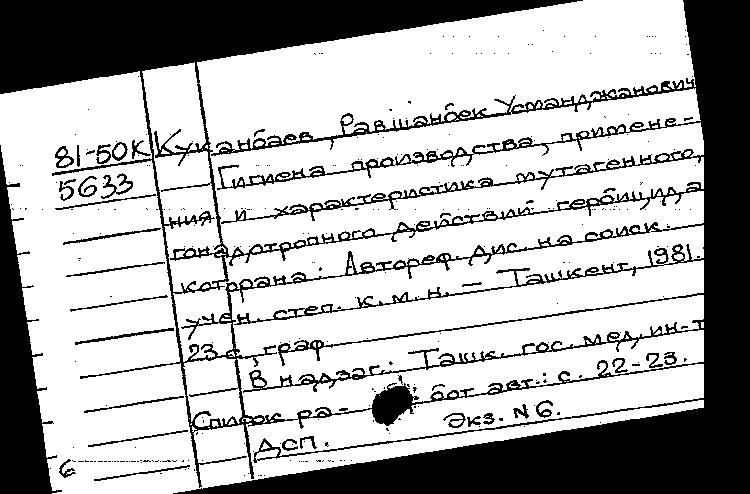 81-50К Куканбаев, Равшанбек Усманджанович
5633 Гигиена производства, примене-
ния и характеристика мутагенного,
гонадотропного действий гербицида
которана: Автореф. дис. на соиск.
учен. степ. к.м.н. – Ташкент, 1981.
23 с., граф.
В надзаг.: Ташк. гос. мед. ин-т
Список ра- бот авт.: с. 22-23.
ДСП. Экз. N 6.
6